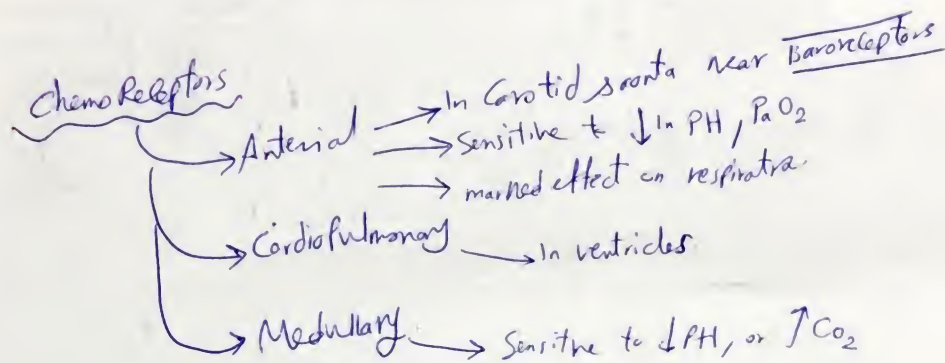 ChemoReceptors
→ Arterial → In Carotid & aorta near Baroreceptors
→ Sensitive to ↓ In PH, PaO2
→ marked effect on respiration.
→ CardioPulmonary → In ventricles.
→ Medullary → Sensitive to ↓PH, or ↑CO2